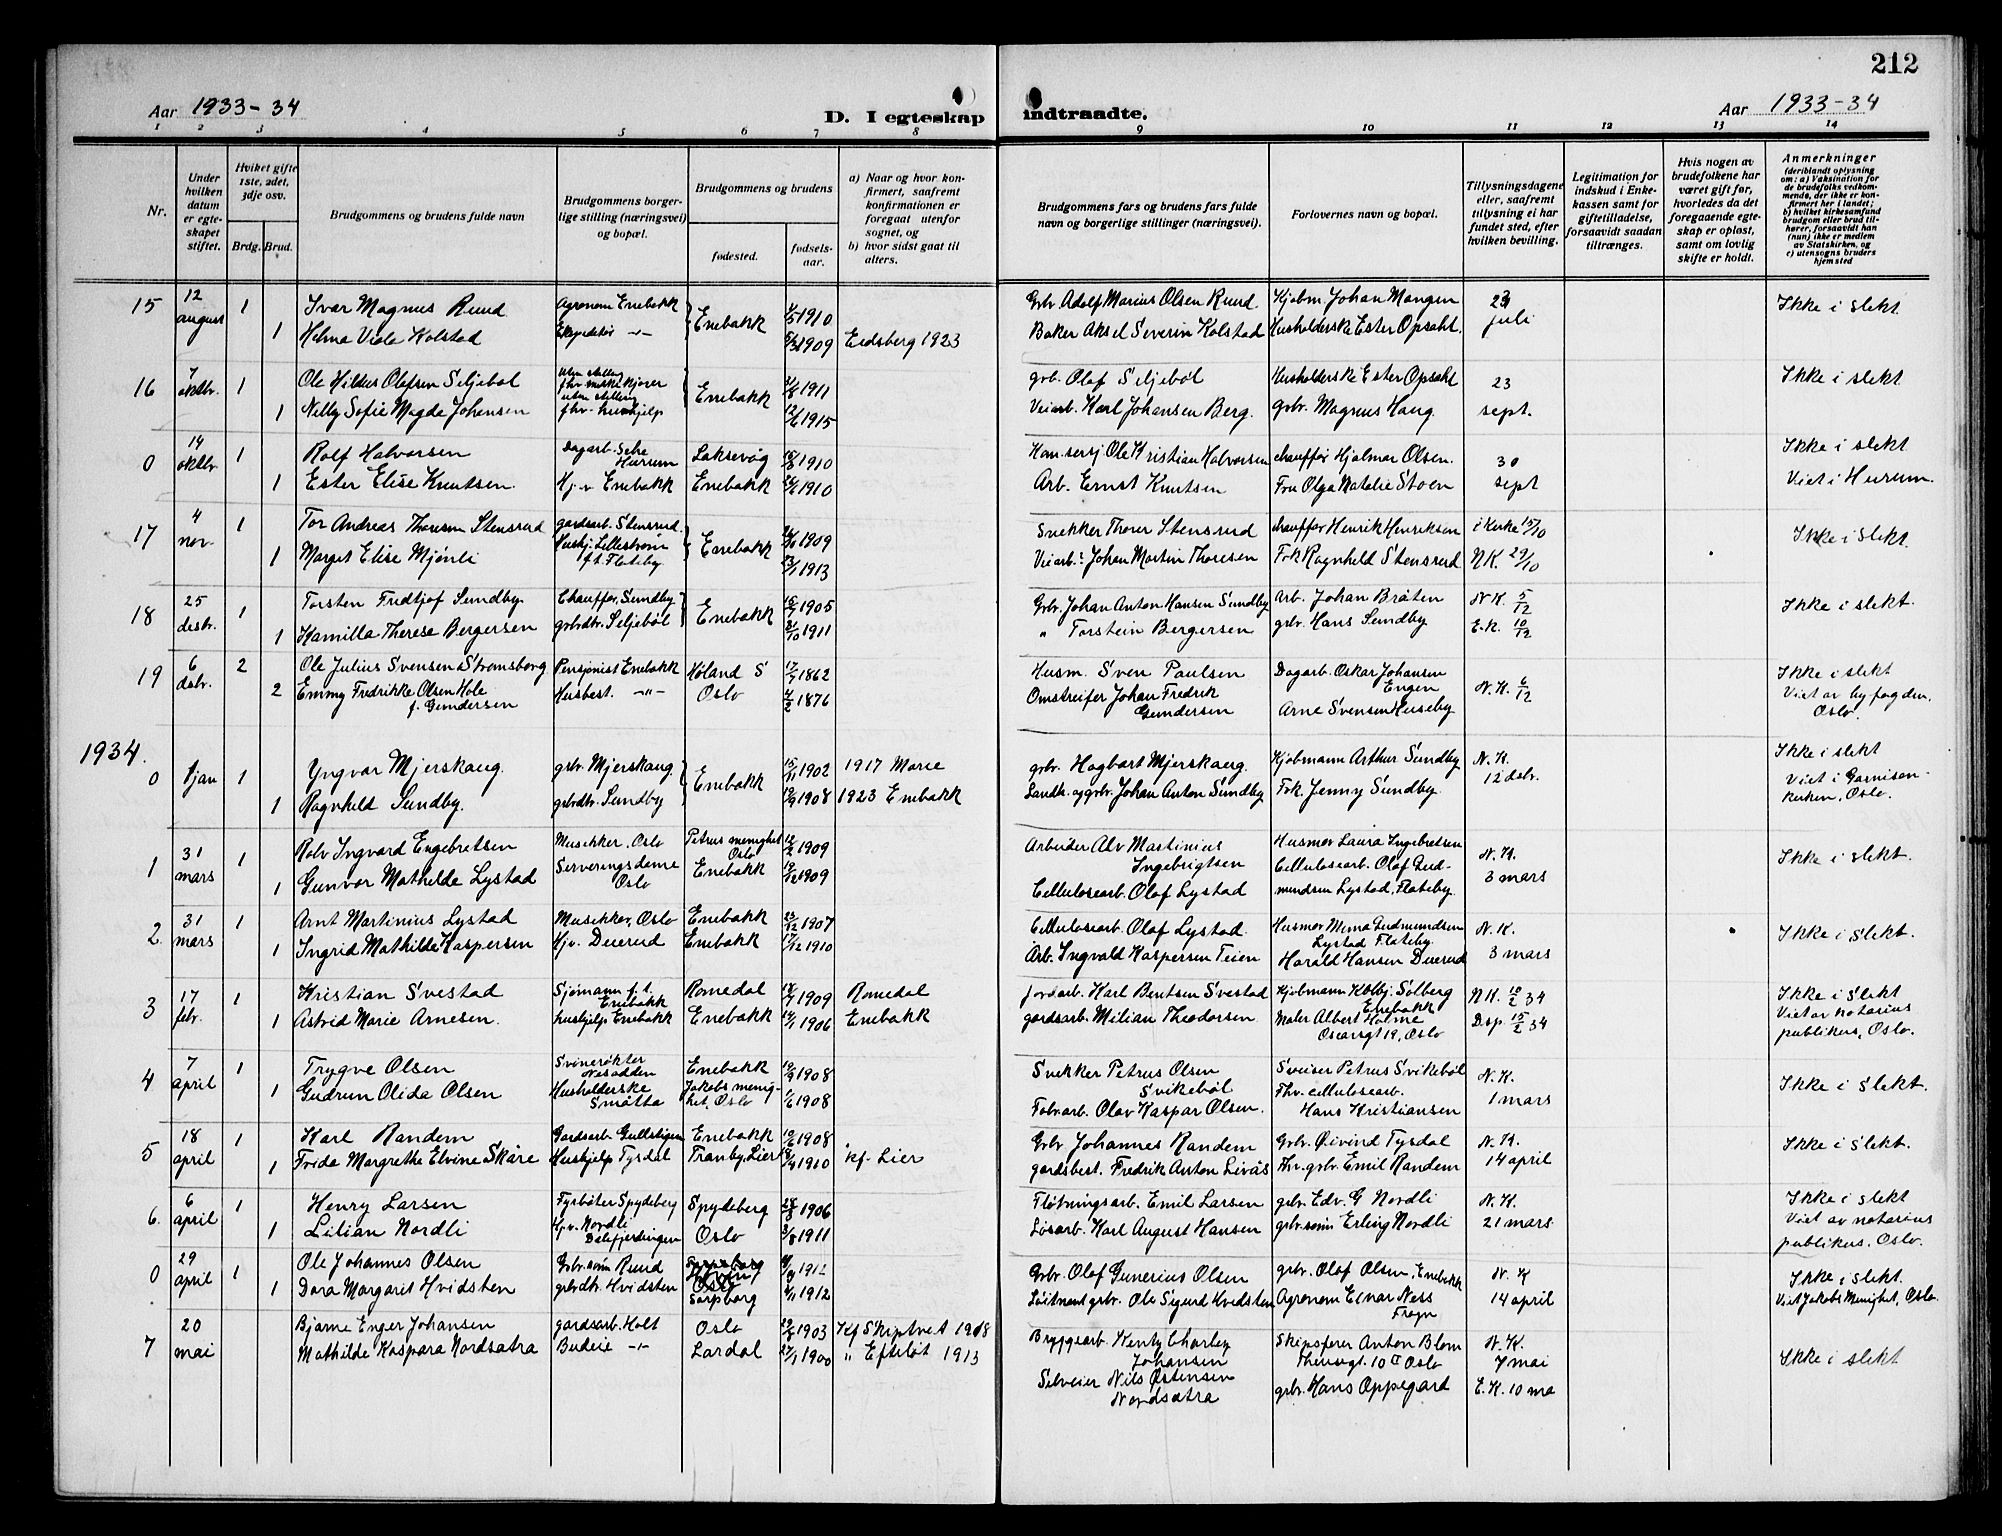 212
Aar 1933-34
D. I egteskap indtraadte.
Aar 1933-34
1 2 3 4 5 6 7 8 9 10 11 12 13 14
Nr.
Under hvilken datum er egteskapet stiftet.
Hviket gifte 1ste, 2det, 3dje osv.
Brdg. Brud.
Brudgommens og brudens fulde navn
Brudgommens borgerlige stilling (næringsvei) og bopæl.
Brudgommens og brudens
fødested.
fødselsaar.
a) Naar og hvor konfirmert, saafremt konfirmationen er foregaat utenfor sognet, og
b) hvor sidst gaat til alters.
Brudgommens fars og brudens fars fulde navn og borgerlige stillinger (næringsvei).
Forlovernes navn og bopæl.
Tillysningsdagene eller, saafremt tillysning ei har fundet sted, efter hvilken bevilling.
Legitimation for indskud i Enkekassen samt for giftetilladelse, forsaavidt saadan tiltrænges.
Hvis nogen av brudefolkene har været gift før, hvorledes da det foregaaende egteskap er opløst, samt om lovlig skifte er holdt.
Anmerkninger (deriblandt oplysning om: a) Vaksination for de brudefolks vedkommende, der ikke er konfirmert her i landet; b) hvilket kirkesamfund brudgom eller brud tilhører, forsaavidt han (hun) ikke er medlem av Statskirken, og c) utensogns bruders hjemsted
15 12 august 1 Ivar Magnus Ruud Agronom Enebakk Enebakk 1/5 1910 Grbr. Adolf Marius Olsen Ruud Kjøbm Johan Mangen 23 juli Ikke i slekt
1 Helma Viola Kolstad Ekspeditør -"- 1909 Eidsberg 1923 Baker Aksel Severin Kolstad Husholderske Ester Opsahl.
16 7 oktbr. 1 Ole Hildus Olafsen Seljebøl uten stilling fhv. melkekjører Enebakk 1911 grbr. Olaf Seljebøl Husholderske Ester Opsahl 23 sept. Ikke i slekt
1 Nelly Sofie Magda Johansen uten stilling fhv. hushjelp 12/6 1915 Veiarb. Karl Johansen Berg. Grbr. Magnus Haug.
0 14 oktbr 1 Rolf Halvorsen Dagarb. Sætre Hurum Laksevåg 1910 Ole Kristian Halvorsen chauffør Hjalmar Olsen. 30 sept Ikke i slekt
1 Ester Elise Knutsen. Hj. v Enebakk Enebakk 1910 Arb. Ernst Knutsen Fru Olga Natalie Støen Viet i Hurum.
17 4 nov. 1 Tor Andreas Thoresen Stensrud gardsarb. Stensrud. Enebakk 1909 Snekker Thorer Stensrud chauffør Henrik Henriksen i Kirke 15/10 Ikke i slekt.
1 Margit Elise Mjønli Hushj. Lillestrøm f.t. Flateby 23/1 1913 Veiarb. Johan Martin Thoresen Frk Ragnhild Stensrud N.K. 29/10
18 25 desbr. 1 Torsten Fredtjof Sundby Chauffør, Sundby Enebakk 1905 Grbr. Johan Anton Hansen Sundby Arb. Johan Bråten N.K. 5/12 Ikke i slekt.
1 Kamilla Therese Bergersen grbrdtr. Seljebøl 21/10 1911 " Torstein Bergersen grbr. Hans Sundby E.K. 10/12
19 6 desbr. 2 Ole Julius Svensen Strømsborg Pensjonist Enebakk Høland S 17/7 1862 Husm. Sven Paulsen Dagarb. Oskar Johansen Engen N.K. 6/12 Ikke i slekt
2 Emmy Fredrikke Olsen Hole f. Gundersen Husbest. -"- Oslo 4/2 1876 Omstreifer Johan Fredrik Gundersen Arne Svensen Huseby Viet av byfogden. Oslo.
1934.
0 1 jan 1 Yngvar Mjerskaug. grbr. Mjerskaug Enebakk 15/11 1902 1917 Marie grbr. Hagbart Mjerskaug. Kjøbmann Arthur Sundby N.K. 12 desbr. Ikke i slekt
1 Ragnhild Sundby. grbrdtr. Sundby 19/9 1908 1923 Enebakk Landh. og grbr. Johan Anton Sundby Frk. Jenny Sundby. Viet i Garnisonkirken, Oslo.
1 31 mars 1 Rolv Ingvard Engebretsen Musikker, Oslo Petrus menighet Oslo 12/2 1909 Arbeider Alv Martinius Ingebrigtsen Husmor Laura Ingebretsen N.K. 3 mars Ikke i slekt.
1 Gunvor Mathilde Lystad Serveringsdame Oslo Enebakk 19/12 1909 Cellulosearb. Olaf Lystad Cellulosearb. Olaf Gudmundsen Lystad, Flateby.
2. 31 mars 1 Arnt Martinius Lystad Musikker, Oslo Enebakk 23/12 1907 Cellulosearb. Olaf Lystad. Husmor Mina Gudmundsen Lystad Flateby. N.K. 3 mars Ikke i slekt.
1 Ingrid Mathilde Kaspersen Hjv. Duerud Enebakk 17/12 1910 Arb. Ingvald Kaspersen Teien Harald Hansen Duerud
3 17 febr. 1 Kristian Svestad Sjømann f.t. Enebakk Romedal 1909 Romedal jordarb. Karl Bentsen Svestad Kjøbmann Kolbj. Solberg Enebakk N.K. 10/2 34 Ikke i slekt
1 Astrid Marie Arnesen. hushjelp Enebakk Enebakk 14/1 1906 Enebakk gardsarb. Milian Theodorsen Maler Albert Holme Oscarsgt 19, Oslo Dsp 15/2 34 Viet av notarius publikus, Oslo.
4 7 april 1 Trygve Olsen Svinerøkter Nesodden Enebakk 10/9 1908 Snekker Petrus Olsen Svikebøl Sveiser Petrus Svikebøl N.K. 1 mars Ikke i slekt.
1 Gudrun Olida Olsen Husholderske Småtta Jakobs menighet, Oslo 1/6 1908 Fabr.arb. Olav Kaspar Olsen. Fhv. cellulosearb. Hans Kristiansen
5 18 april 1 Karl Randem Gardsarb. Gullstigen Enebakk 19/6 1908 Grbr Johannes Randem Grbr. Øivind Tysdal N.K. 14 april Ikke i slekt.
1 Frida Margrethe Elvine Skåre Hushjelp Tysdal Tranby, Lier 1910 kf. Lier gardsbest. Fredrik Anton Livås Fhv. grbr. Emil Randem
6. 6 april 1 Henry Larsen Fyrbøter Spydeberg Spydeberg 28/8 1906 Fløtningsarb. Emil Larsen grbr. Edv. G Nordli N.K. 21 mars Ikke i slekt
1 Lilian Nordli Hjv. Nordli Dalefjerdingen Oslo 3/8 1911 Løsarb. Karl August Hansen grbr.sønn Erling Nordli Viet av notarius publikus. Oslo.
0 29 april 1 Ole Johannes Olsen Grbr.sønn Ruud Grbr. Olaf Gunerius Olsen grbr. Olaf Olsen, Enebakk N.K 14 april Ikke i slekt.
1 Dora Margarit Hvidsten grbrdtr. Hvidsten Sarpborg 1912 Løitnant grbr. Ole Sigurd Hvidsten Agronom Einar Ness Frogn Viet Jakobs Menighet, Oslo.
7 20 mai Bjarne Enger Johansen gardsarb. Holt Oslo 1903 Kf Skiptvet 1918 Bryggearb. Henty Charley Johansen Skipsfører Anton Blom Theresgt. 10 II Oslo N.K. 7 mai Ikke i slekt
Mathilde Kaspara Nordsætra Budeie -"- Lardal 27/1 1900 " Efteløt 1913 Sliveier Nils Østensen Nordsætra grbr. Hans Oppegård E.K. 10 ma